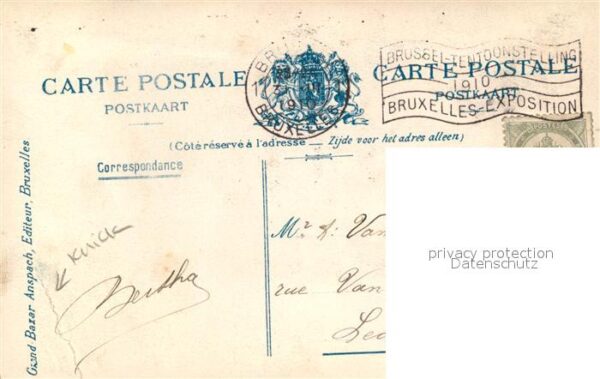 CARTE POSTALE
POSTKAART
CARTE POSTALE
POSTKAART
BRUXELLES
1910
BRUXELLES
BRUSSEL-TENTOONSTELLING
1910
BRUXELLES-EXPOSITION
(Côté réservé à l'adresse — Zijde voor het adres alleen)
Correspondance
Grand Bazar Anspach, Editeur, Bruxelles
Knick
Bertha
Mr A. Van
rue Van
privacy protection
Datenschutz